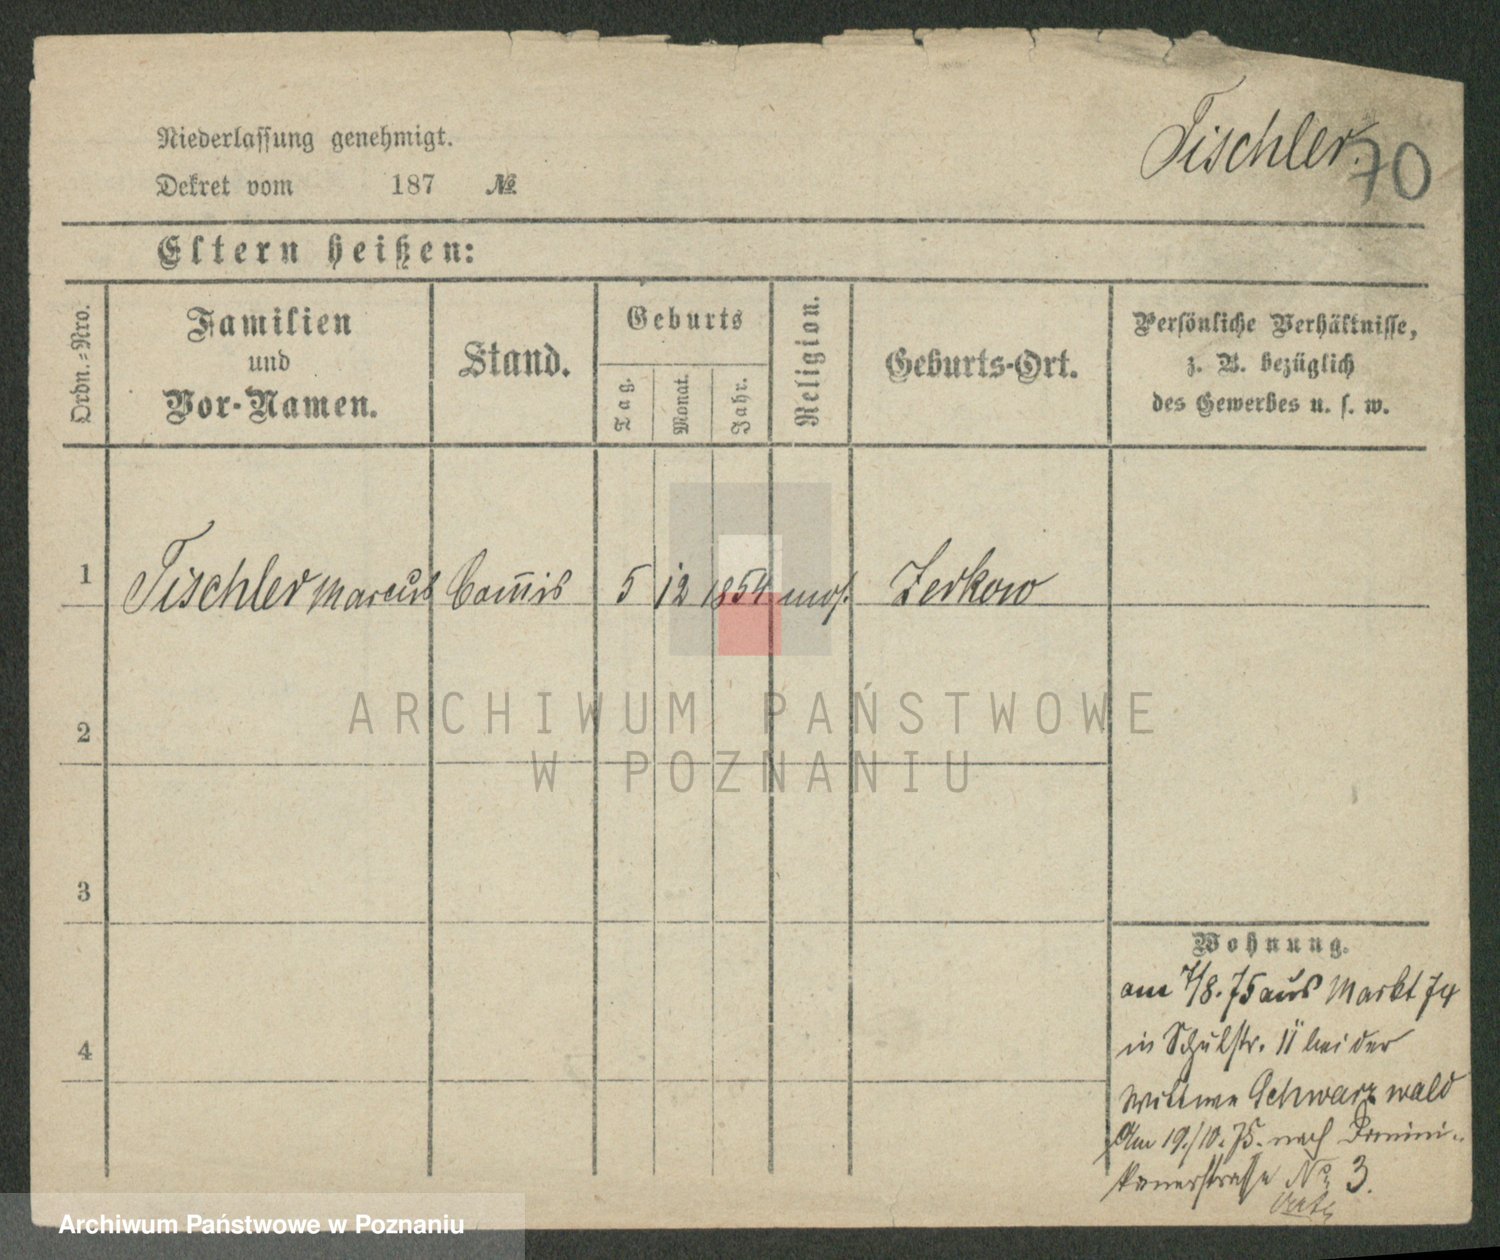 Tischler.
70
Niederlassung genehmigt.
Dekret vom 187 №
Eltern heißen:
Ordn.-Nro.
Familien
und
Vor-Namen.
Stand.
Geburts
Tag.
Monat.
Jahr.
Religion.
Geburts-Ort.
Persönliche Verhältnisse,
z. B. bezüglich
des Gewerbes u. s. w.
1 Tischler Marcus Com̅is 5 12 1854 mos. Zerkow
2
3
4
ARCHIWUM PAŃSTWOWE
W POZNANIU
Wohnung.
am 7/8. 75 aus Markt 74
in Schulstr. 11 bei der
Wittwe Schwarzwald
Am 19./10. 75. nach Domini-
kanerstrasse No 3.
Archiwum Państwowe w Poznaniu